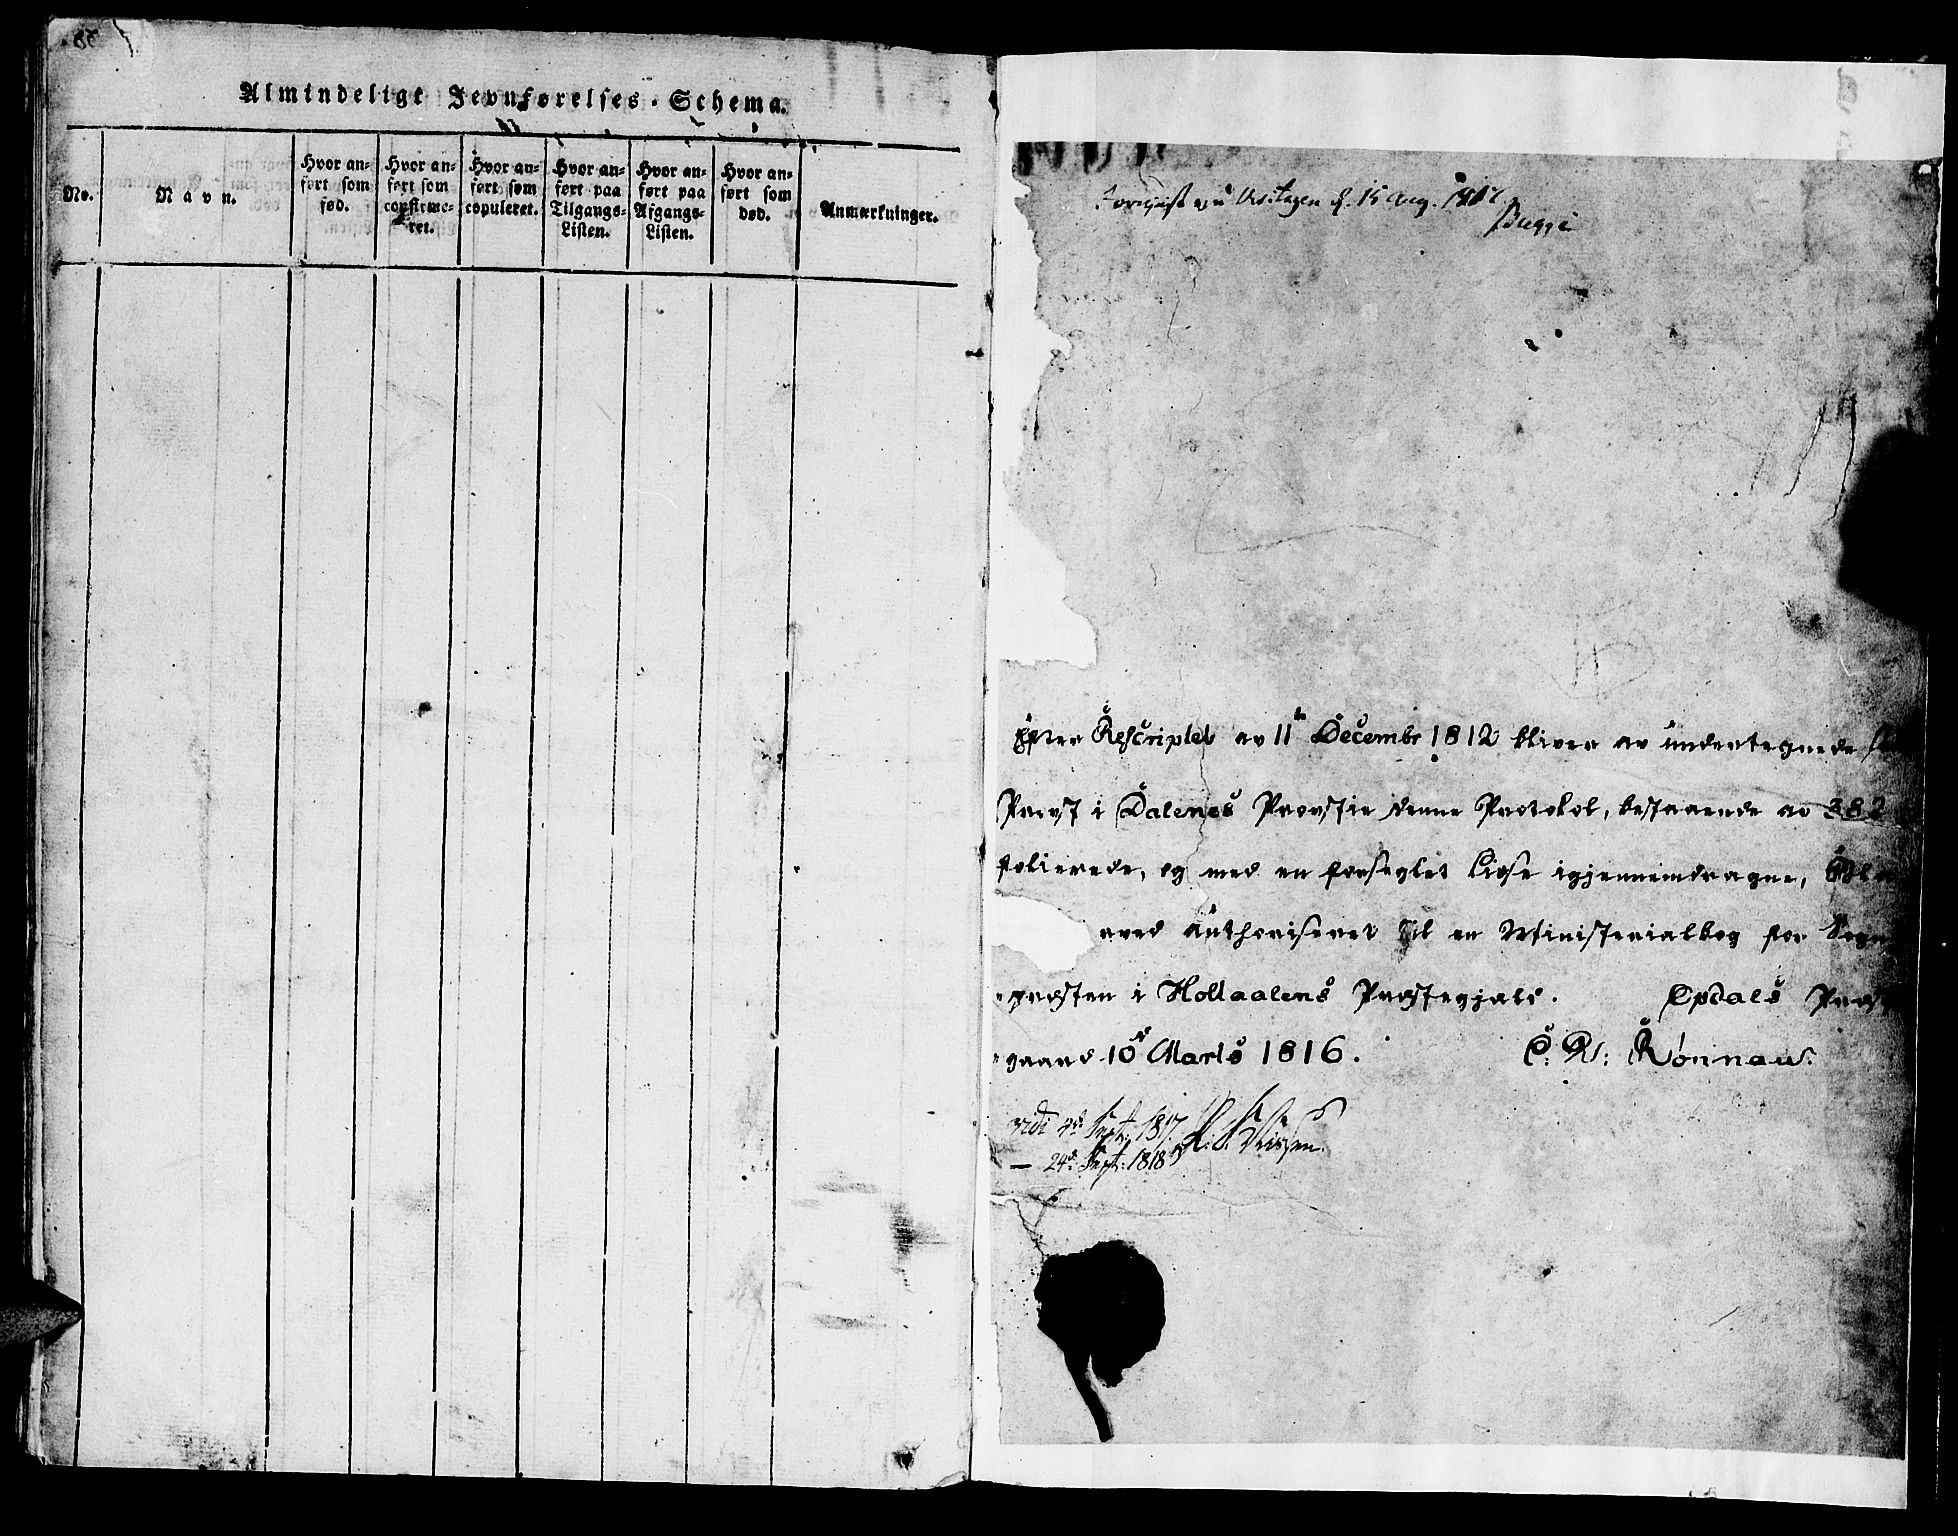 Almindeligt Jevnførelses-Schema.
No.
Navn.
Hvor an-
ført som
fød.
Hvor an-
ført som
confirme-
ret.
Hvor an-
ført som
copuleret.
Hvor an-
ført paa
Tilgangs-
Listen.
Hvor an-
ført paa
Afgangs-
Listen.
Hvor an-
ført som
død.
Anmærkninger.
Visitazen d. 15 Aug.
Bugge
Efter Rescriptet av 11te Decembr 1812 bliver av undertegnede
Provst i Dalenes Provstie denne Protokol, bestaaende av 382
folierede, og med en forseglet Lidse igjennemdragne,
authoriseret til en Ministerialbog for Sogne
præsten i Holtaalens Præstegjæld. Opdals Præste
gaard 10de Marts 1816. C. R: Rønnau.
vidi Sept. 1817.
— 24de Sept: 1818 Nissen.